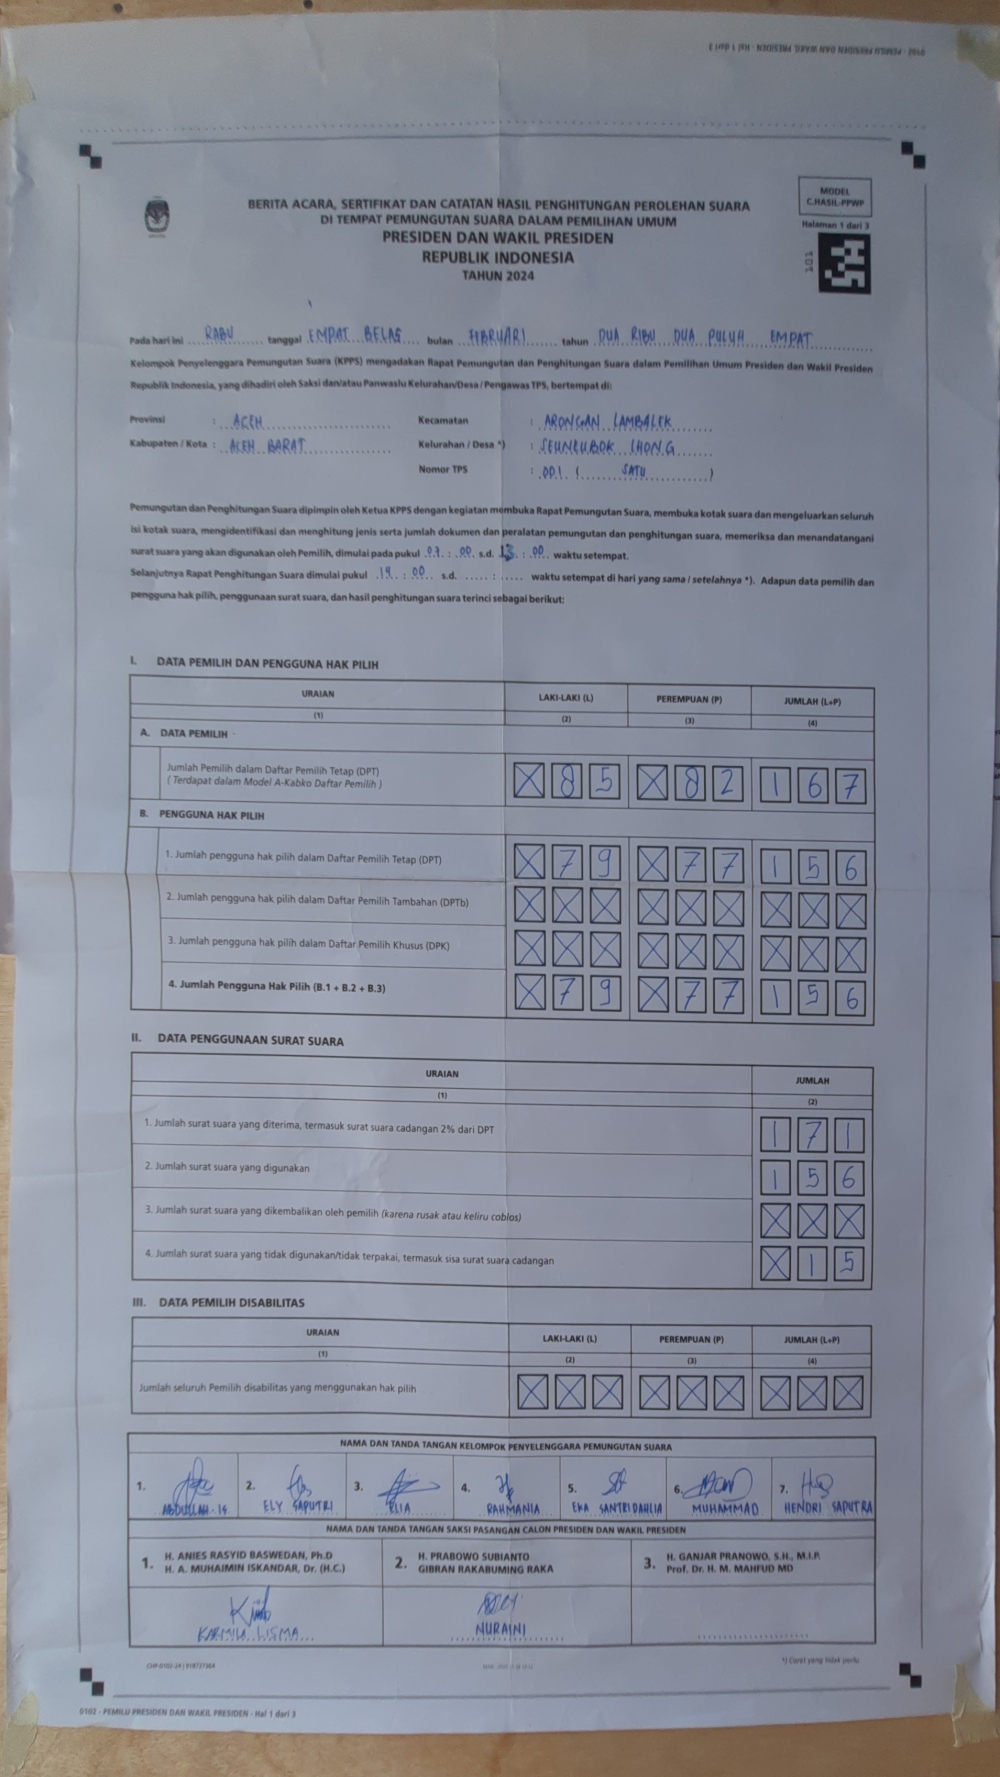 0102 - PEMILU PRESIDEN DAN WAKIL PRESIDEN - Hal 1 dari 3
MODEL
C.HASIL-PPWP
Halaman 1 dari 3
101
BERITA ACARA, SERTIFIKAT DAN CATATAN HASIL PENGHITUNGAN PEROLEHAN SUARA
DI TEMPAT PEMUNGUTAN SUARA DALAM PEMILIHAN UMUM
PRESIDEN DAN WAKIL PRESIDEN
REPUBLIK INDONESIA
TAHUN 2024
Pada hari ini RABU tanggal EMPAT BELAS bulan FEBRUARI tahun DUA RIBU DUA PULUH EMPAT
Kelompok Penyelenggara Pemungutan Suara (KPPS) mengadakan Rapat Pemungutan dan Penghitungan Suara dalam Pemilihan Umum Presiden dan Wakil Presiden
Republik Indonesia, yang dihadiri oleh Saksi dan/atau Panwaslu Kelurahan/Desa / Pengawas TPS, bertempat di:
Provinsi : ACEH Kecamatan : ARONGAN LAMBALEK
Kabupaten / Kota : ACEH BARAT Kelurahan / Desa *) : SEUNEUBOK LHONG
Nomor TPS : 001 ( SATU )
Pemungutan dan Penghitungan Suara dipimpin oleh Ketua KPPS dengan kegiatan membuka Rapat Pemungutan Suara, membuka kotak suara dan mengeluarkan seluruh
isi kotak suara, mengidentifikasi dan menghitung jenis serta jumlah dokumen dan peralatan pemungutan dan penghitungan suara, memeriksa dan menandatangani
surat suara yang akan digunakan oleh Pemilih, dimulai pada pukul 07 : 00 s.d. 13 : 00 waktu setempat.
Selanjutnya Rapat Penghitungan Suara dimulai pukul 14 : 00 s.d. ..... : ..... waktu setempat di hari yang sama / setelahnya *). Adapun data pemilih dan
pengguna hak pilih, penggunaan surat suara, dan hasil penghitungan suara terinci sebagai berikut:
I. DATA PEMILIH DAN PENGGUNA HAK PILIH
URAIAN LAKI-LAKI (L) PEREMPUAN (P) JUMLAH (L+P)
(1) (2) (3) (4)
A. DATA PEMILIH
Jumlah Pemilih dalam Daftar Pemilih Tetap (DPT) X 8 5 X 8 2 1 6 7
( Terdapat dalam Model A-Kabko Daftar Pemilih )
B. PENGGUNA HAK PILIH
1. Jumlah pengguna hak pilih dalam Daftar Pemilih Tetap (DPT) X 7 9 X 7 7 1 5 6
2. Jumlah pengguna hak pilih dalam Daftar Pemilih Tambahan (DPTb) X X X X X X X X X
3. Jumlah pengguna hak pilih dalam Daftar Pemilih Khusus (DPK) X X X X X X X X X
4. Jumlah Pengguna Hak Pilih (B.1 + B.2 + B.3) X 7 9 X 7 7 1 5 6
II. DATA PENGGUNAAN SURAT SUARA
URAIAN JUMLAH
(1) (2)
1. Jumlah surat suara yang diterima, termasuk surat suara cadangan 2% dari DPT 1 7 1
2. Jumlah surat suara yang digunakan 1 5 6
3. Jumlah surat suara yang dikembalikan oleh pemilih (karena rusak atau keliru coblos) X X X
4. Jumlah surat suara yang tidak digunakan/tidak terpakai, termasuk sisa surat suara cadangan X 1 5
III. DATA PEMILIH DISABILITAS
URAIAN LAKI-LAKI (L) PEREMPUAN (P) JUMLAH (L+P)
(1) (2) (3) (4)
Jumlah seluruh Pemilih disabilitas yang menggunakan hak pilih X X X X X X X X X
NAMA DAN TANDA TANGAN KELOMPOK PENYELENGGARA PEMUNGUTAN SUARA
1. 2. 3. 4. 5. 6. 7.
ABDULLAH. IS ELY SAPUTRI ELIA RAHMANIA EKA SANTRI DAHLIA MUHAMMAD HENDRI SAPUTRA
NAMA DAN TANDA TANGAN SAKSI PASANGAN CALON PRESIDEN DAN WAKIL PRESIDEN
1. H. ANIES RASYID BASWEDAN, Ph.D 2. H. PRABOWO SUBIANTO 3. H. GANJAR PRANOWO, S.H., M.I.P.
H. A. MUHAIMIN ISKANDAR, Dr. (H.C.) GIBRAN RAKABUMING RAKA Prof. Dr. H. M. MAHFUD MD
KARMILA LISMA NURAINI
*) Coret yang tidak perlu
0102 - PEMILU PRESIDEN DAN WAKIL PRESIDEN - Hal 1 dari 3